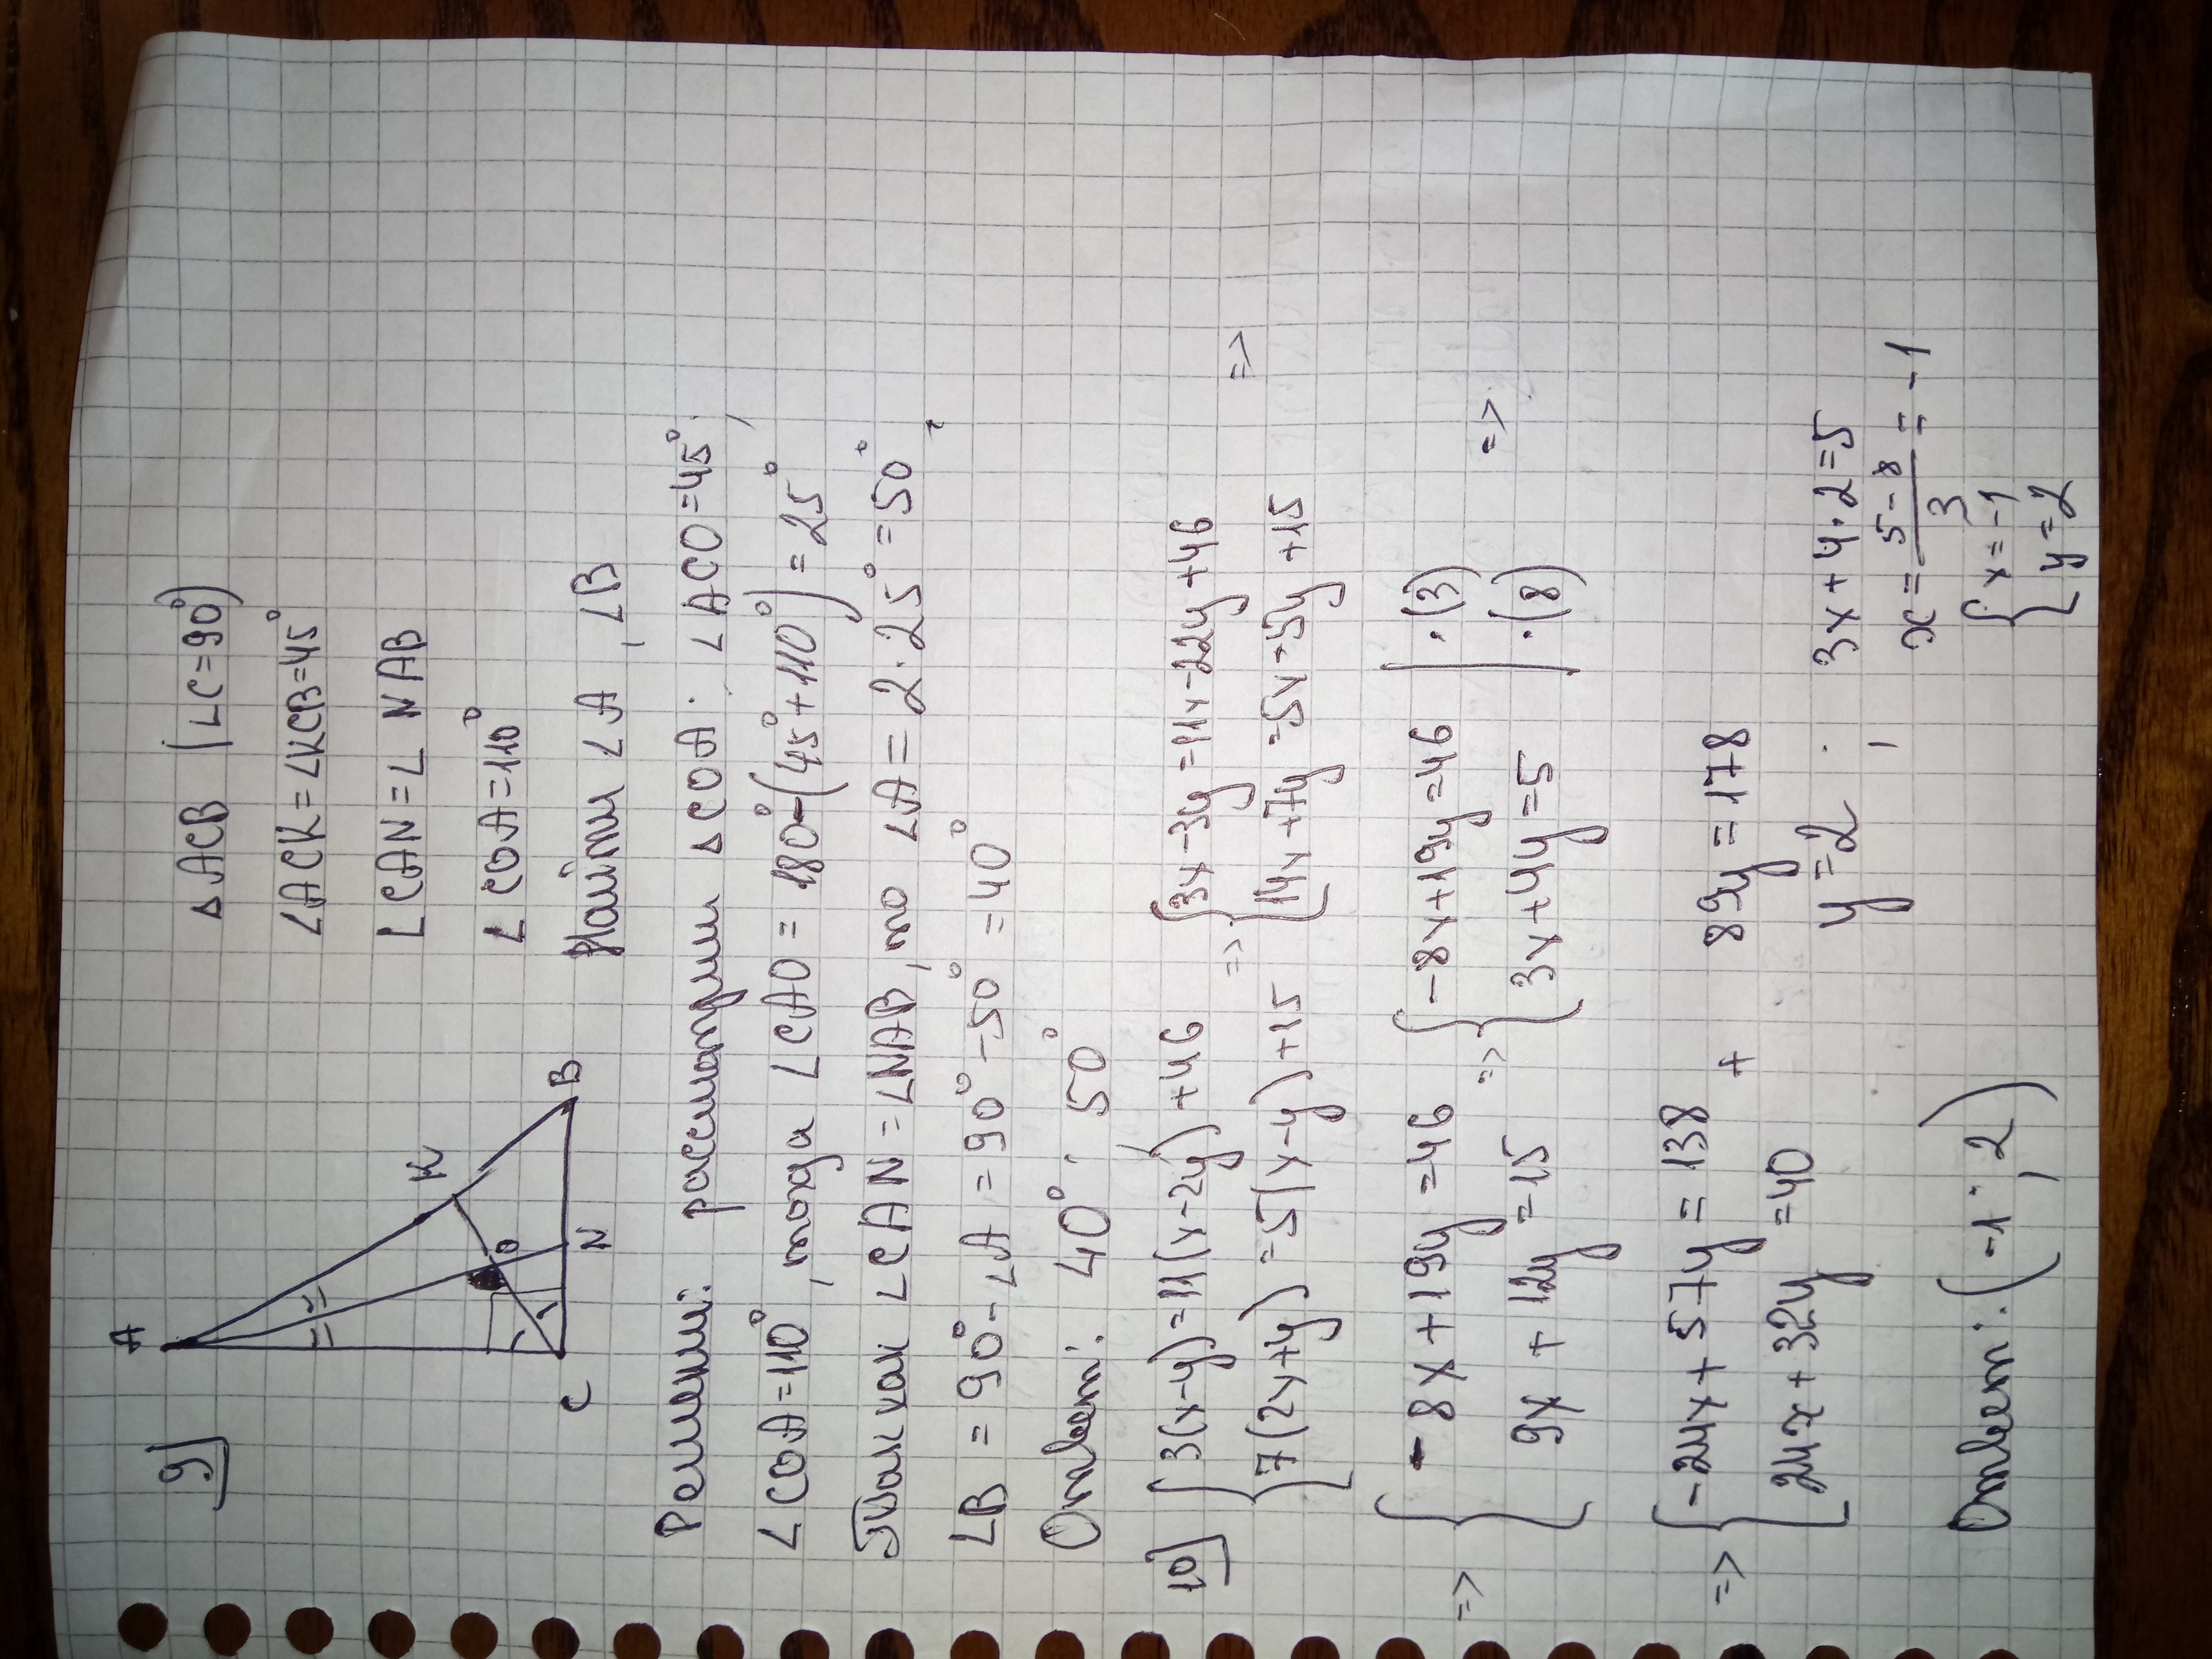 9)
A
K
O
C
N
B
△ACB (∠C=90°)
∠ACK=∠KCB=45°
∠CAN=∠NAB
∠COA=110°
Найти ∠A, ∠B
Решени: рассмотрим △COA: ∠ACO=45°;
∠COA=110°, тогда ∠CAO=180°-(45°+110°)=25°
Так как ∠CAN=∠NAB, то ∠A=2·25°=50°,
∠B=90°-∠A=90°-50°=40°
Ответ: 40°; 50°
10) {3(x-y)=11(x-2y)+46 => {3x-3y=11x-22y+46 =>
{7(2x+y)=5(x-y)+15 {14x+7y=5x-5y+15
=> {-8x+19y=46 => {-8x+19y=46 |·(3) =>
{9x+12y=15 {3x+4y=5 |·(8)
=> {-24x+57y=138 + 89y=178
{24x+32y=40 y=2; 3x+4·2=5
x=\frac{5-8}{3}=-1
{x=-1
{y=2
Ответ: (-1; 2)